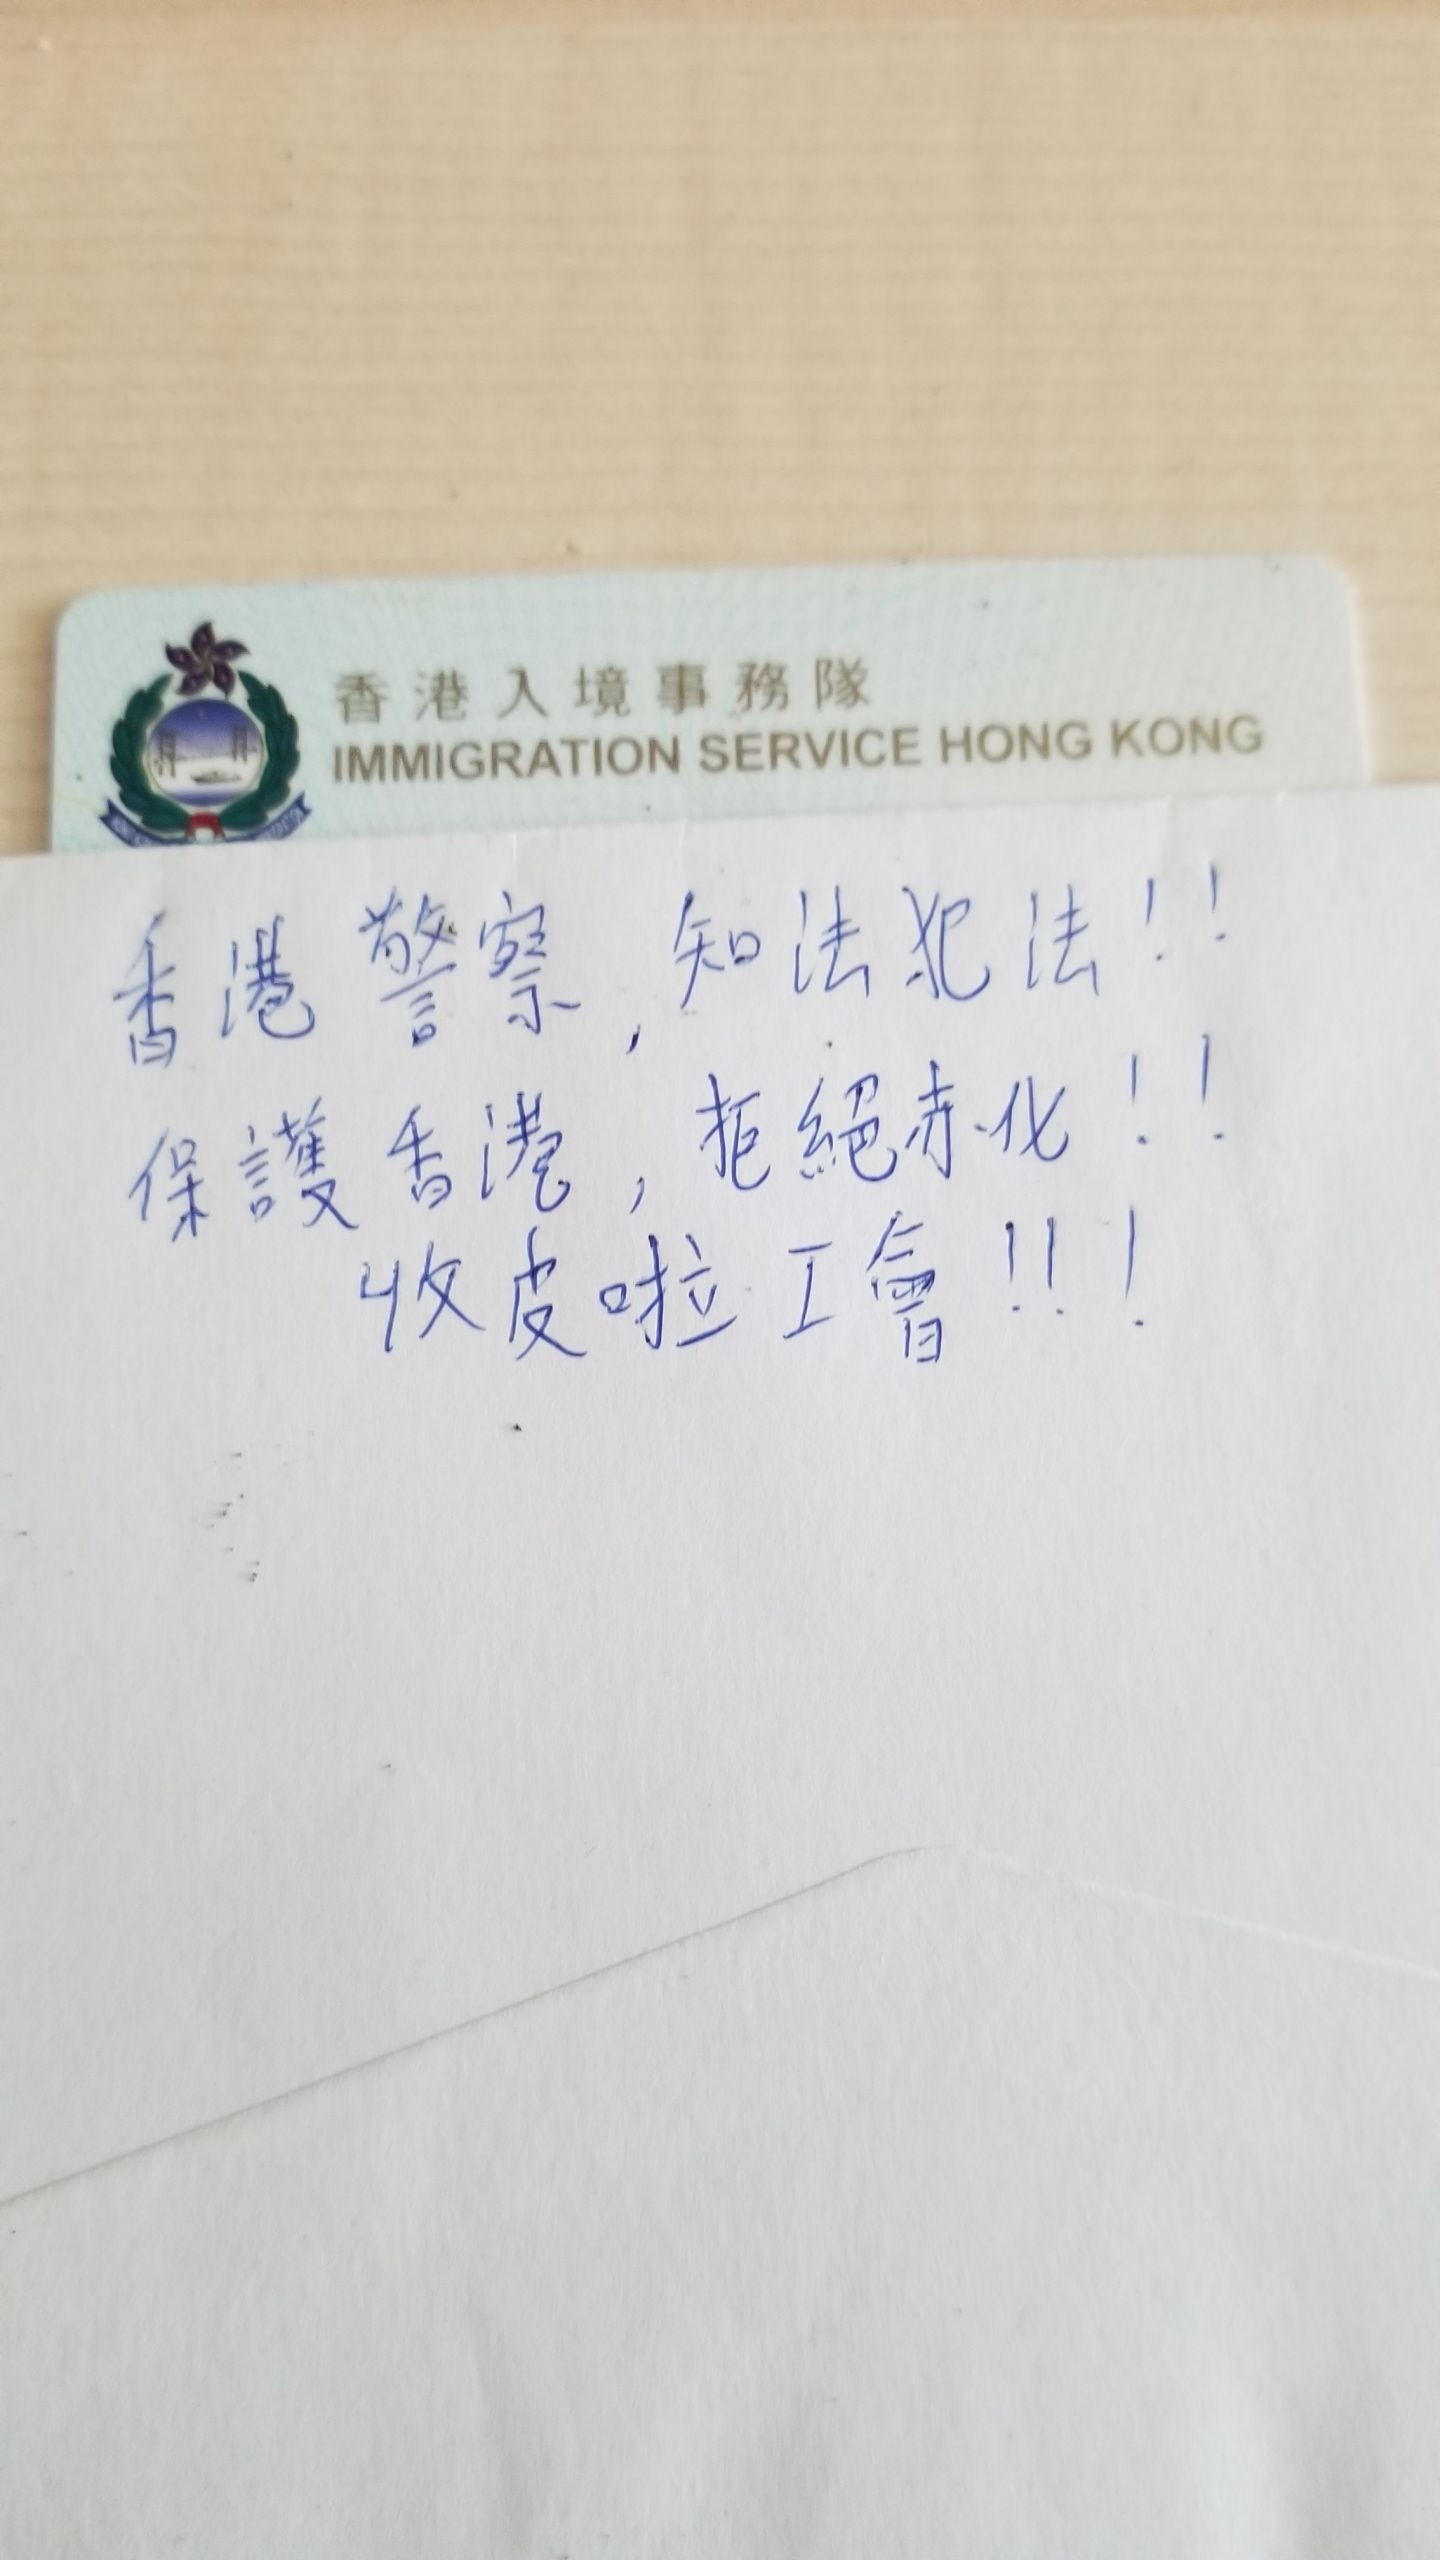 香港入境事務隊
IMMIGRATION SERVICE HONG KONG
香港警察,知法犯法!!
保護香港,拒絕赤化!!
收皮啦工會!!!